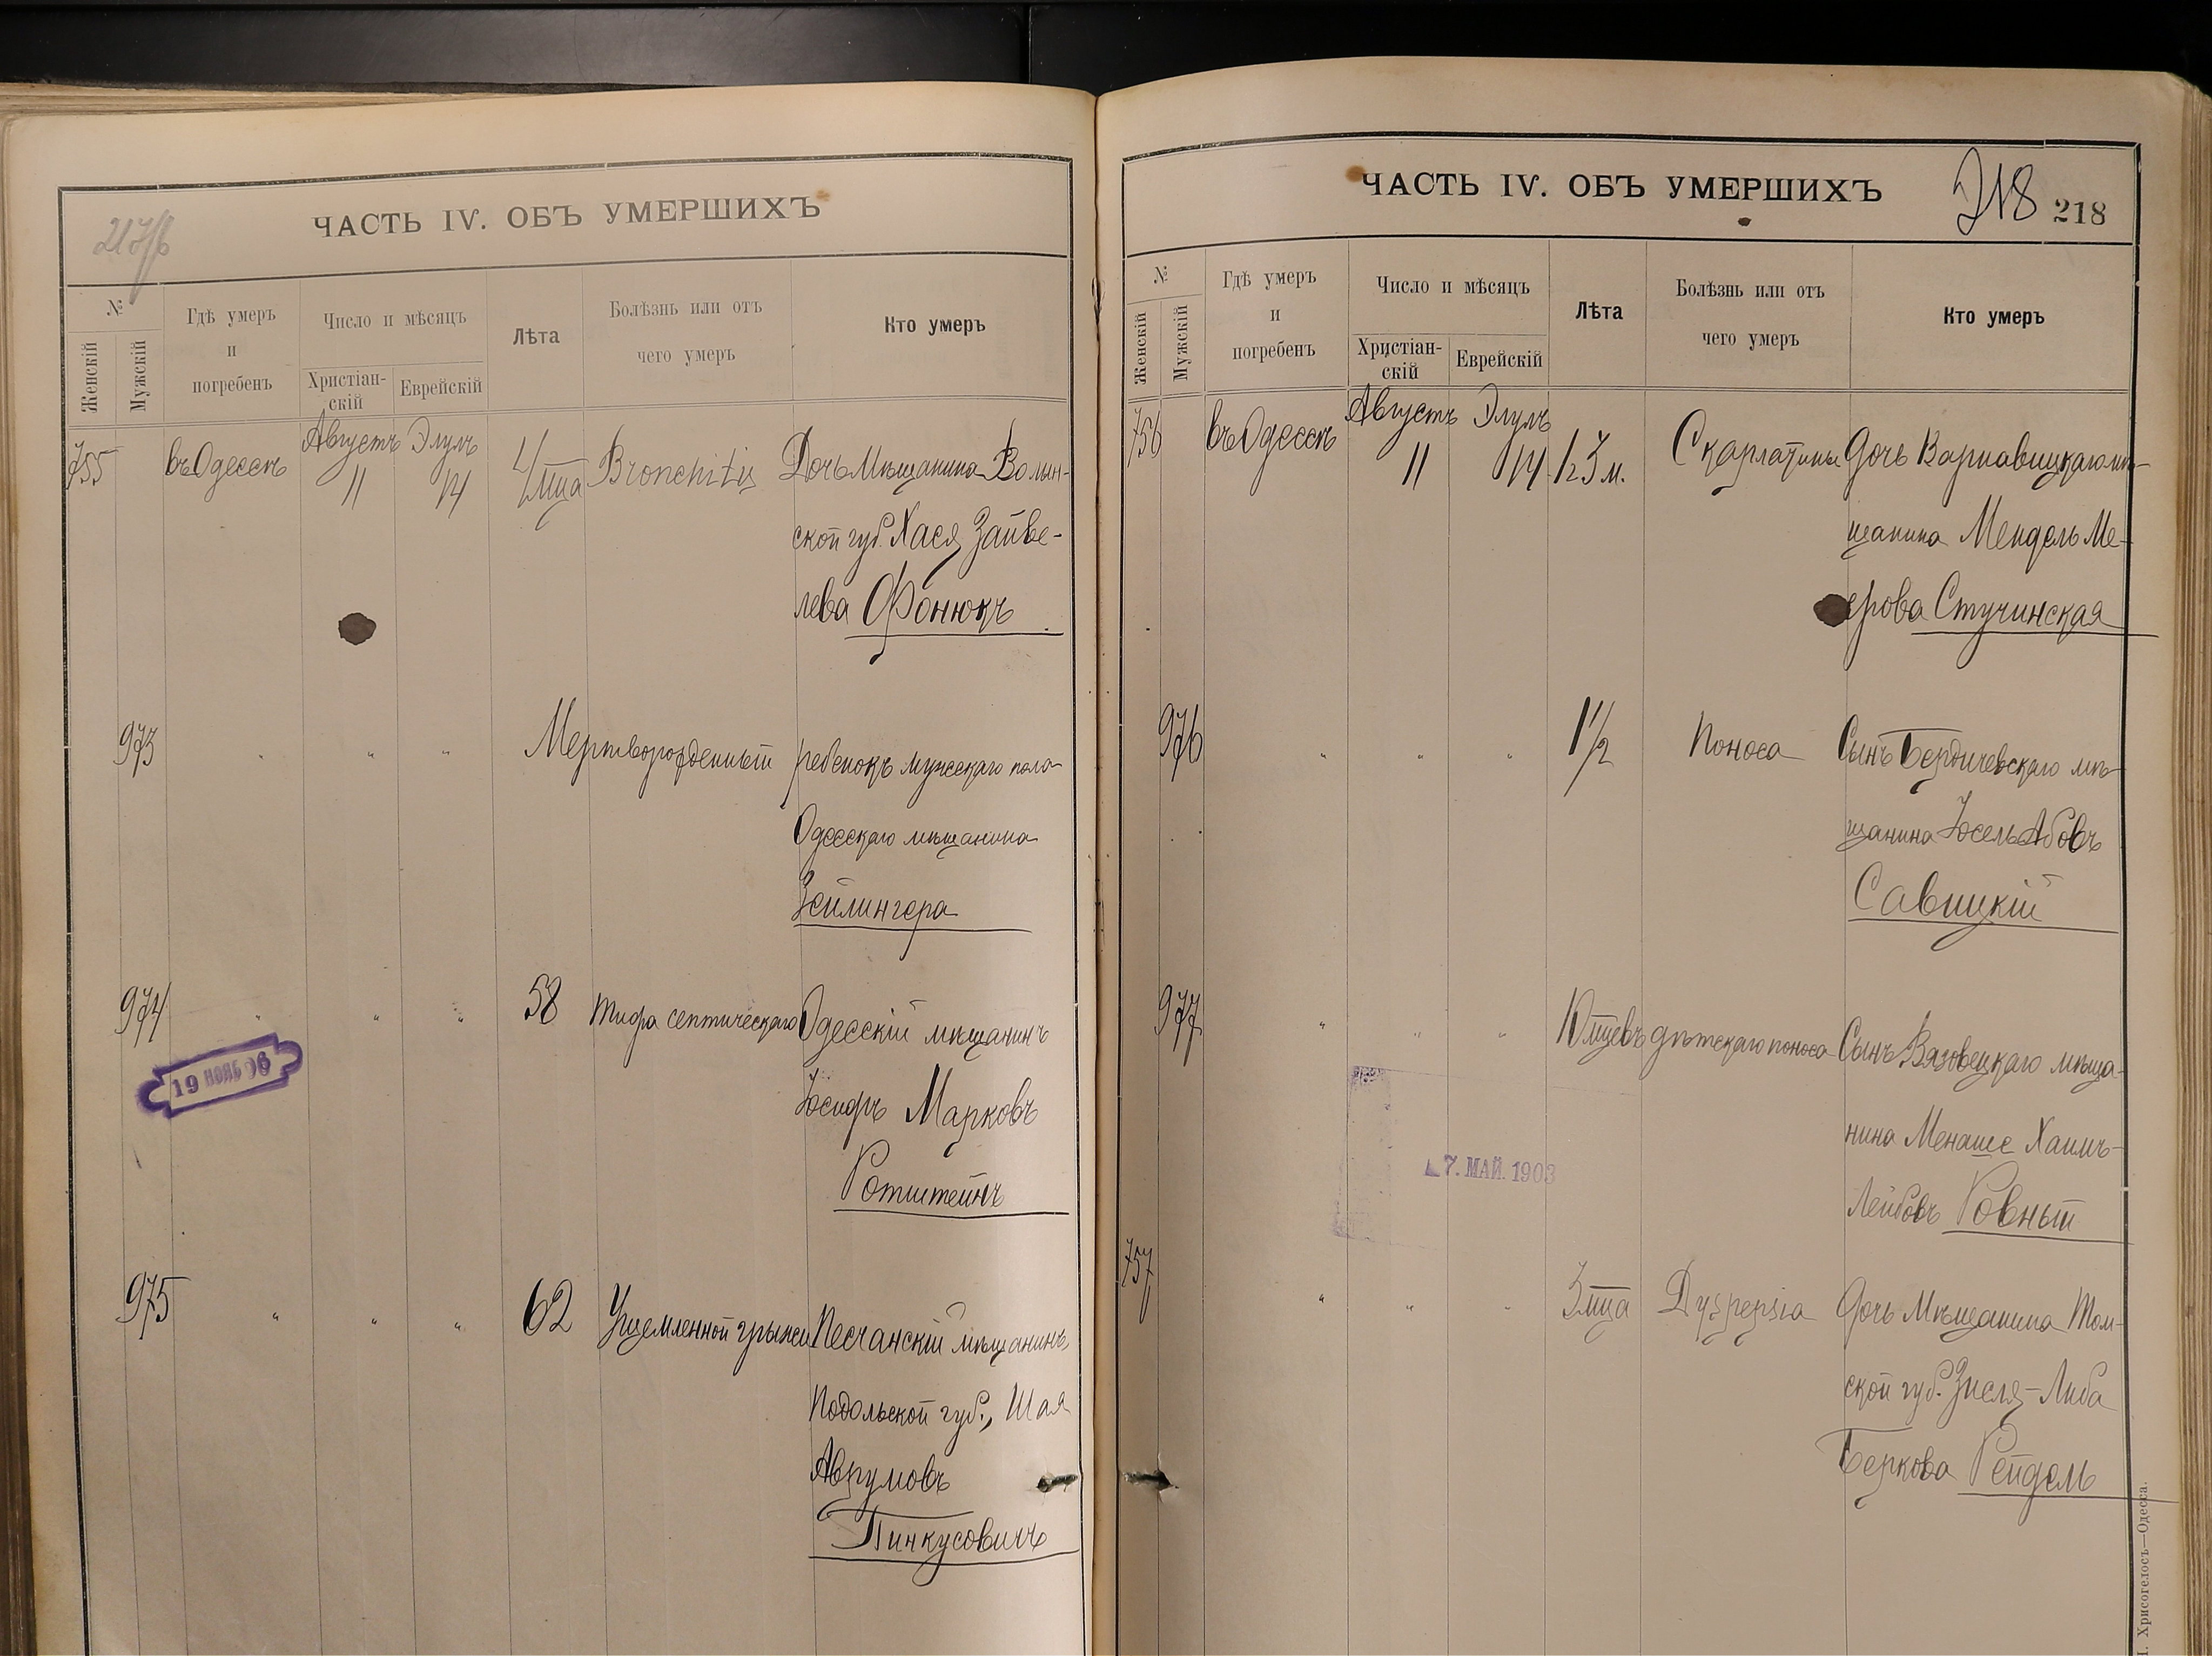 217/б
ЧАСТЬ IV. ОБЪ УМЕРШИХЪ
№
Женскій
Мужскій
Гдѣ умеръ
и
погребенъ
Число и мѣсяцъ
Христіан-
скій
Еврейскій
Лѣта
Болѣзнь или отъ
чего умеръ
Кто умеръ
755 въ Одессѣ Августъ 11 Элулъ 14 4 мца Bronchitis Дочь Мѣщанина Волын-
ской губ. Хася Зайве-
лева Фонюкъ
973 " " " Мертворожденный ребенокъ мужскаго пола
Одесскаго мѣщанина
Зейлингера
974 " " " 58 Тифа септическаго Одесскій мѣщанинъ
Іосифъ Марковъ
Ротштейнъ
19 НОЯБ 96
975 " " " 62 Ущемленной грыжи Песчанскій мѣщанинъ
Подольской губ., Шая
Аврумовъ
Пинкусовичъ
ЧАСТЬ IV. ОБЪ УМЕРШИХЪ
218 218
№
Женскій
Мужскій
Гдѣ умеръ
и
погребенъ
Число и мѣсяцъ
Христіан-
скій
Еврейскій
Лѣта
Болѣзнь или отъ
чего умеръ
Кто умеръ
756 въ Одессѣ Августъ 11 Элулъ 14 1 г. 3 м. Скарлатины Дочь Варнавицкаго мѣ-
щанина Мендель Ме-
ерова Стучинская
976 " " " 1 1/2 Поноса Сынъ Бердичевскаго мѣ-
щанина Іосель Абовъ
Савицкій
977 " " " 10 мцевъ дѣтскаго поноса Сынъ Вязовецкаго мѣща-
нина Менаше Хаимъ-
Лейбовъ Ровный
7. МАЙ. 1903
757 " " " 3 мца Dyspepsia Дочь Мѣщанина Том-
ской губ. Зися-Либа
Беркова Рейдель
Хрисогелосъ—Одесса.